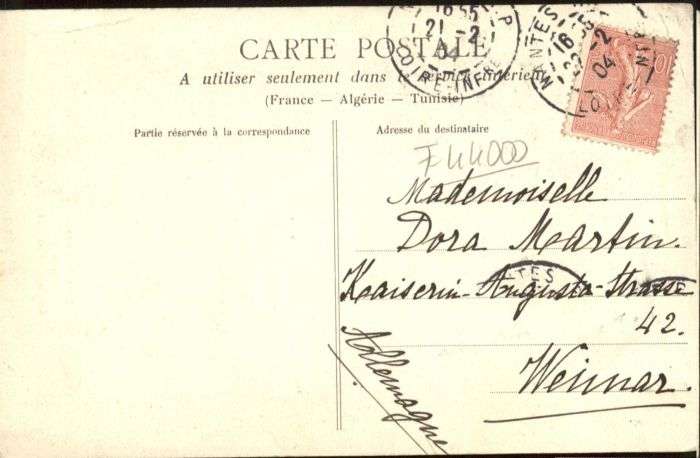 CARTE POSTALE
A utiliser seulement dans le service intérieur
(France — Algérie — Tunisie)
Partie réservée à la correspondance
Adresse du destinataire
16 55
21 - 2
04
LOIRE-INFRE
NANTES
16 55
21 - 2
04
LOIRE
10
F44000
Mademoiselle
Dora Martin.
NTES
Kaiserin-Augusta-Strasse
42.
Weimar.
Allemagne